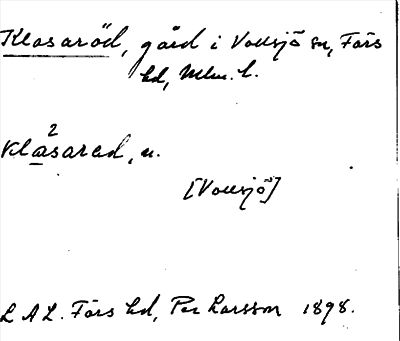 Klasaröd, gård i Vollsjö sn, Färs
hd, Mlm. l.
2
Klasared, n.
[Vollsjö]
L A L. Färs hd, Per Larsson 1898.